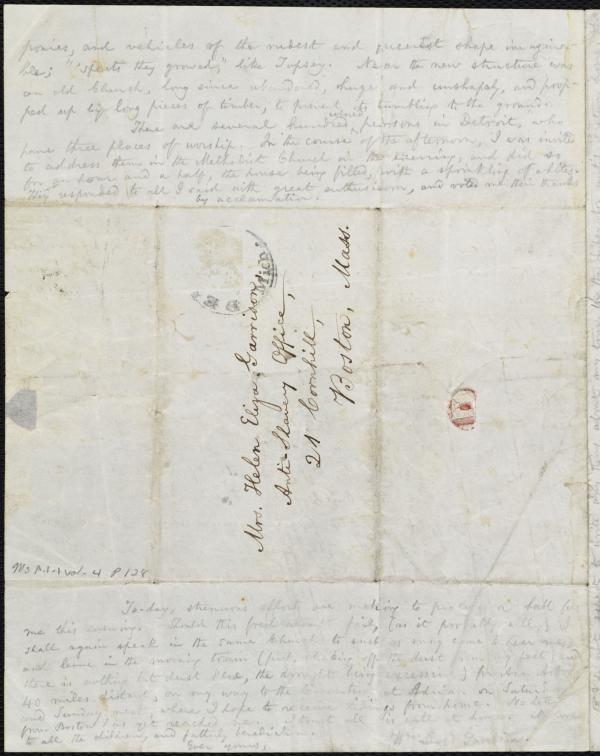 ponies, and vehicles of the rudest and queerest shape imagina-
ble; "'spects they growed," like Topsey. Near the new structure was
an old Church, long since abandoned, huge and unshapely, and prop-
ped up by long pieces of timber, to prevent its tumbling to the ground.
There are several hundred colored persons in Detroit, who
have three places of worship. In the course of the afternoon, I was invited
to address them in the Methodist Church in the evening, and did so
for an hour and a half, the house being filled, with a sprinkling of whites.
They responded to all I said with great enthusiasm, and voted me their thanks
by acclamation.
Mrs. Helen Eliza Garrison,
Anti-Slavery Office,
21 Cornhill,
Boston, Mass.
Ms A.1.1 vol. 4 P 128
To-day, strenuous efforts are making to procure a hall for
me this evening. Should this fresh attempt fail, (as it probably will,) I
shall again speak in the same Church to such as may come to hear me,
and leave in the morning train (first, shaking off the dust from my feet, and
there is nothing but dust here, the drought being excessive) for Ann Arbor,
40 miles distant, on my way to the at Adrian on Satur-
and Sunday next, where I hope to receive tidings from home. No letter
from Boston has yet reached me. I trust all is well at home.
to all the children, and fatherly benedictions.
Ever yours,
Garrison.